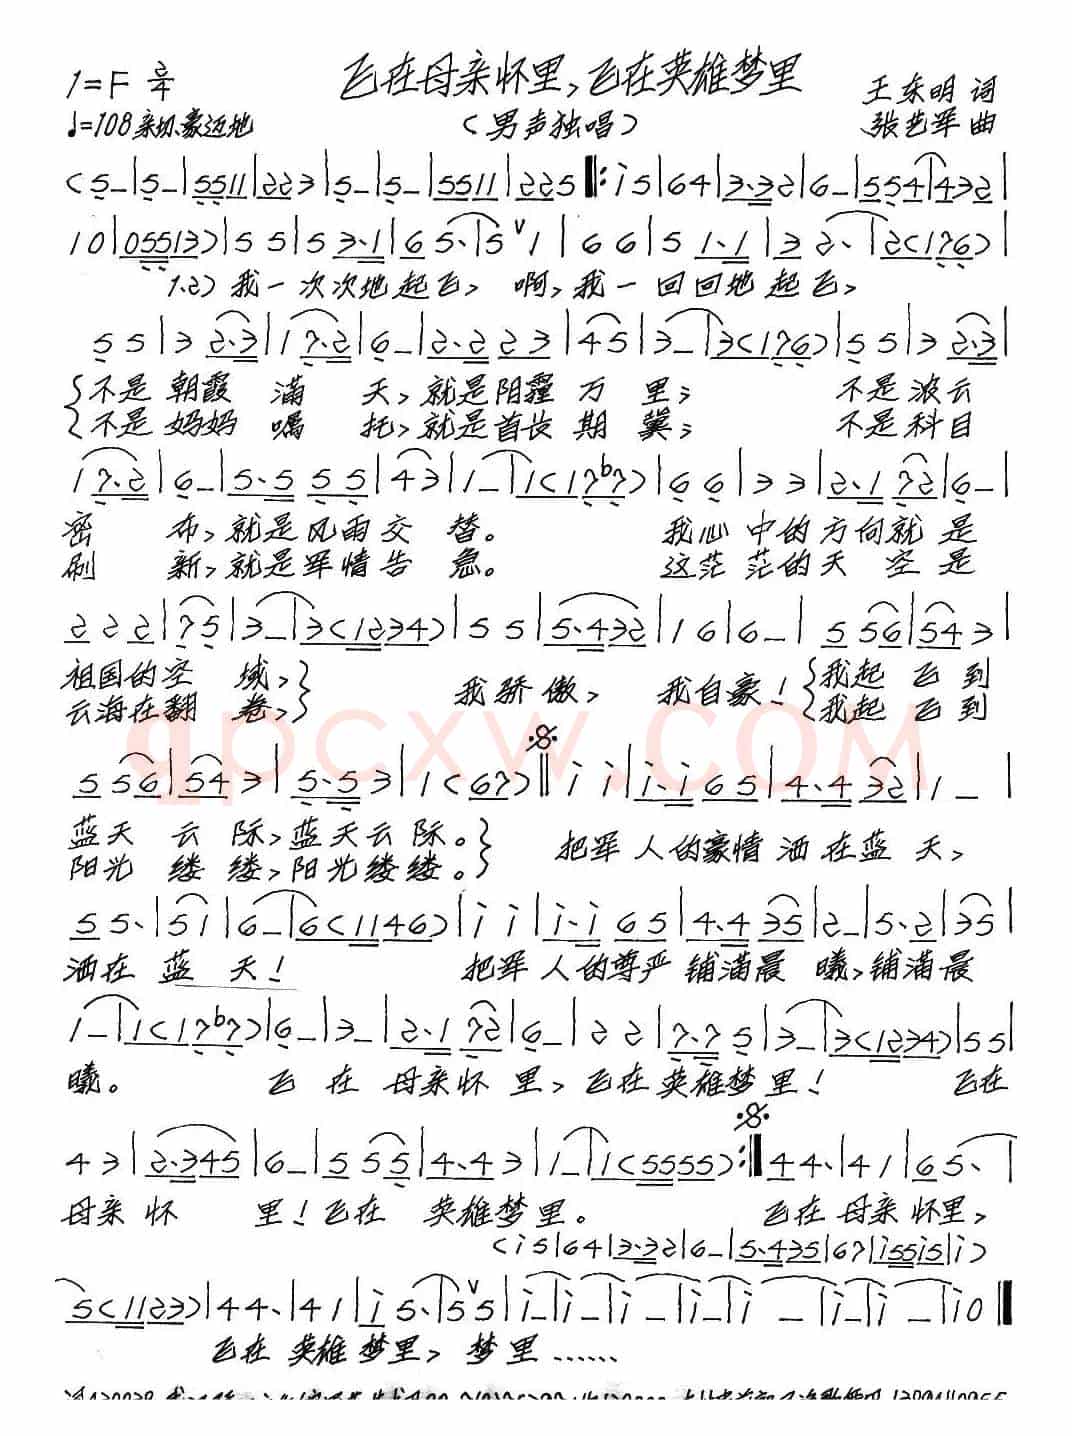 飞在母亲怀里,飞在英雄梦里
1=F 2/4
王东明 词
♩=108 亲切、豪迈地
(男声独唱)
张艺军 曲
(5–|5–|5511|223|5–|5–|5511|225‖:i5|64|3·32|6–|554|432|
10|05513)|55|53·1|65·|5ⱽ1|66|51·1|32·|2(176)|
1.2) 我一次次地起飞, 啊,我一回回地起飞,
55|32·3|17·2|6–|2·223|45|3–|3(176)|55|32·3|
不是朝霞满天,就是阳霾万里; 不是波云
不是妈妈嘱托,就是首长期冀; 不是科目
17·2|6–|5·555|43|1–|1(17♭7)|66|33|2·172|6–|
密布,就是风雨交替。 我心中的方向就是
刷新,就是军情告急。 这茫茫的天空是
222|75|3–|3(1234)|55|5·432|16|6–|556|543|
祖国的空域, 我骄傲, 我自豪! 我起飞到
云海在翻卷, 我起飞到
qpcxw.COM
556|543|5·53|1(67)‖ii|i·i65|4·432|1–|
蓝天云际,蓝天云际。 把军人的豪情洒在蓝天,
阳光缕缕,阳光缕缕。
55·|5i|6–|6(1146)|ii|i·i65|4·435|2–|5·2|35|
洒在蓝天! 把军人的尊严铺满晨曦,铺满晨
1–|1(17♭7)|6–|3–|2·172|6–|22|7·75|3–|3(1234)|55|
曦。 飞在母亲怀里,飞在英雄梦里! 飞在
43|2·345|6–|555|4·43|1–|1(5555):‖44·|41|65·|
母亲怀里!飞在英雄梦里。 飞在母亲怀里,
(i5|64|3·32|6–|5·435|67|i55i5|i)
5(1123)|44·|41|i5·|5ⱽ5|i–|i–|i–|i–|i–|i–|i–|i0‖
飞在英雄梦里,梦里……